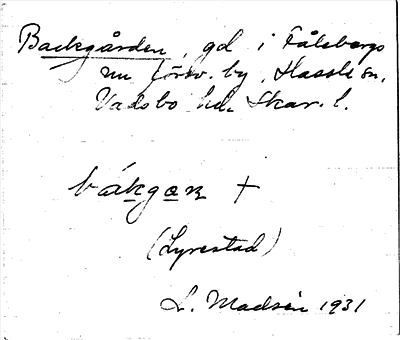 Backgården, gd i Fåleberg
nu försv. by, Hassle sn,
Vadsbo hd. Skar. l.
bákgaꝛ +
(Lyrestad)
L. Madsén 1931